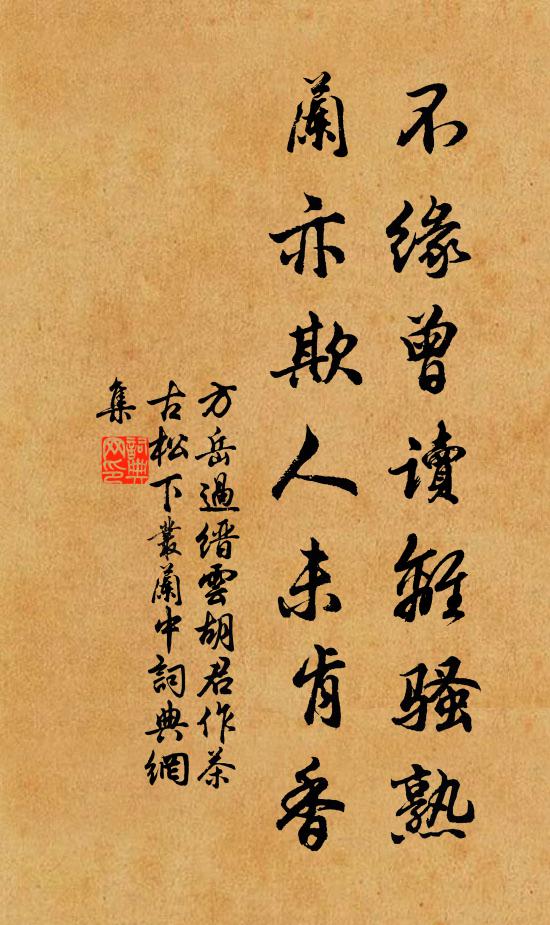 不緣曾讀離騷熟
蘭亦欺人未肯香
方岳過縉雲胡君作茶
古松下叢蘭中詞典網
集
詞典網印